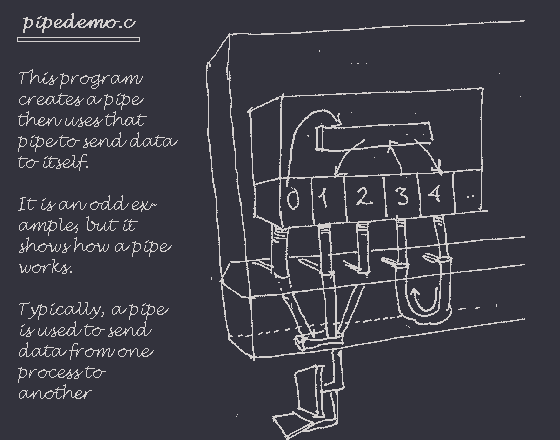 pipedemo.c
This program
creates a pipe
then uses that
pipe to send data
to itself.
It is an odd ex-
ample, but it
shows how a pipe
works.
Typically, a pipe
is used to send
data from one
process to
another
0 1 2 3 4 ..